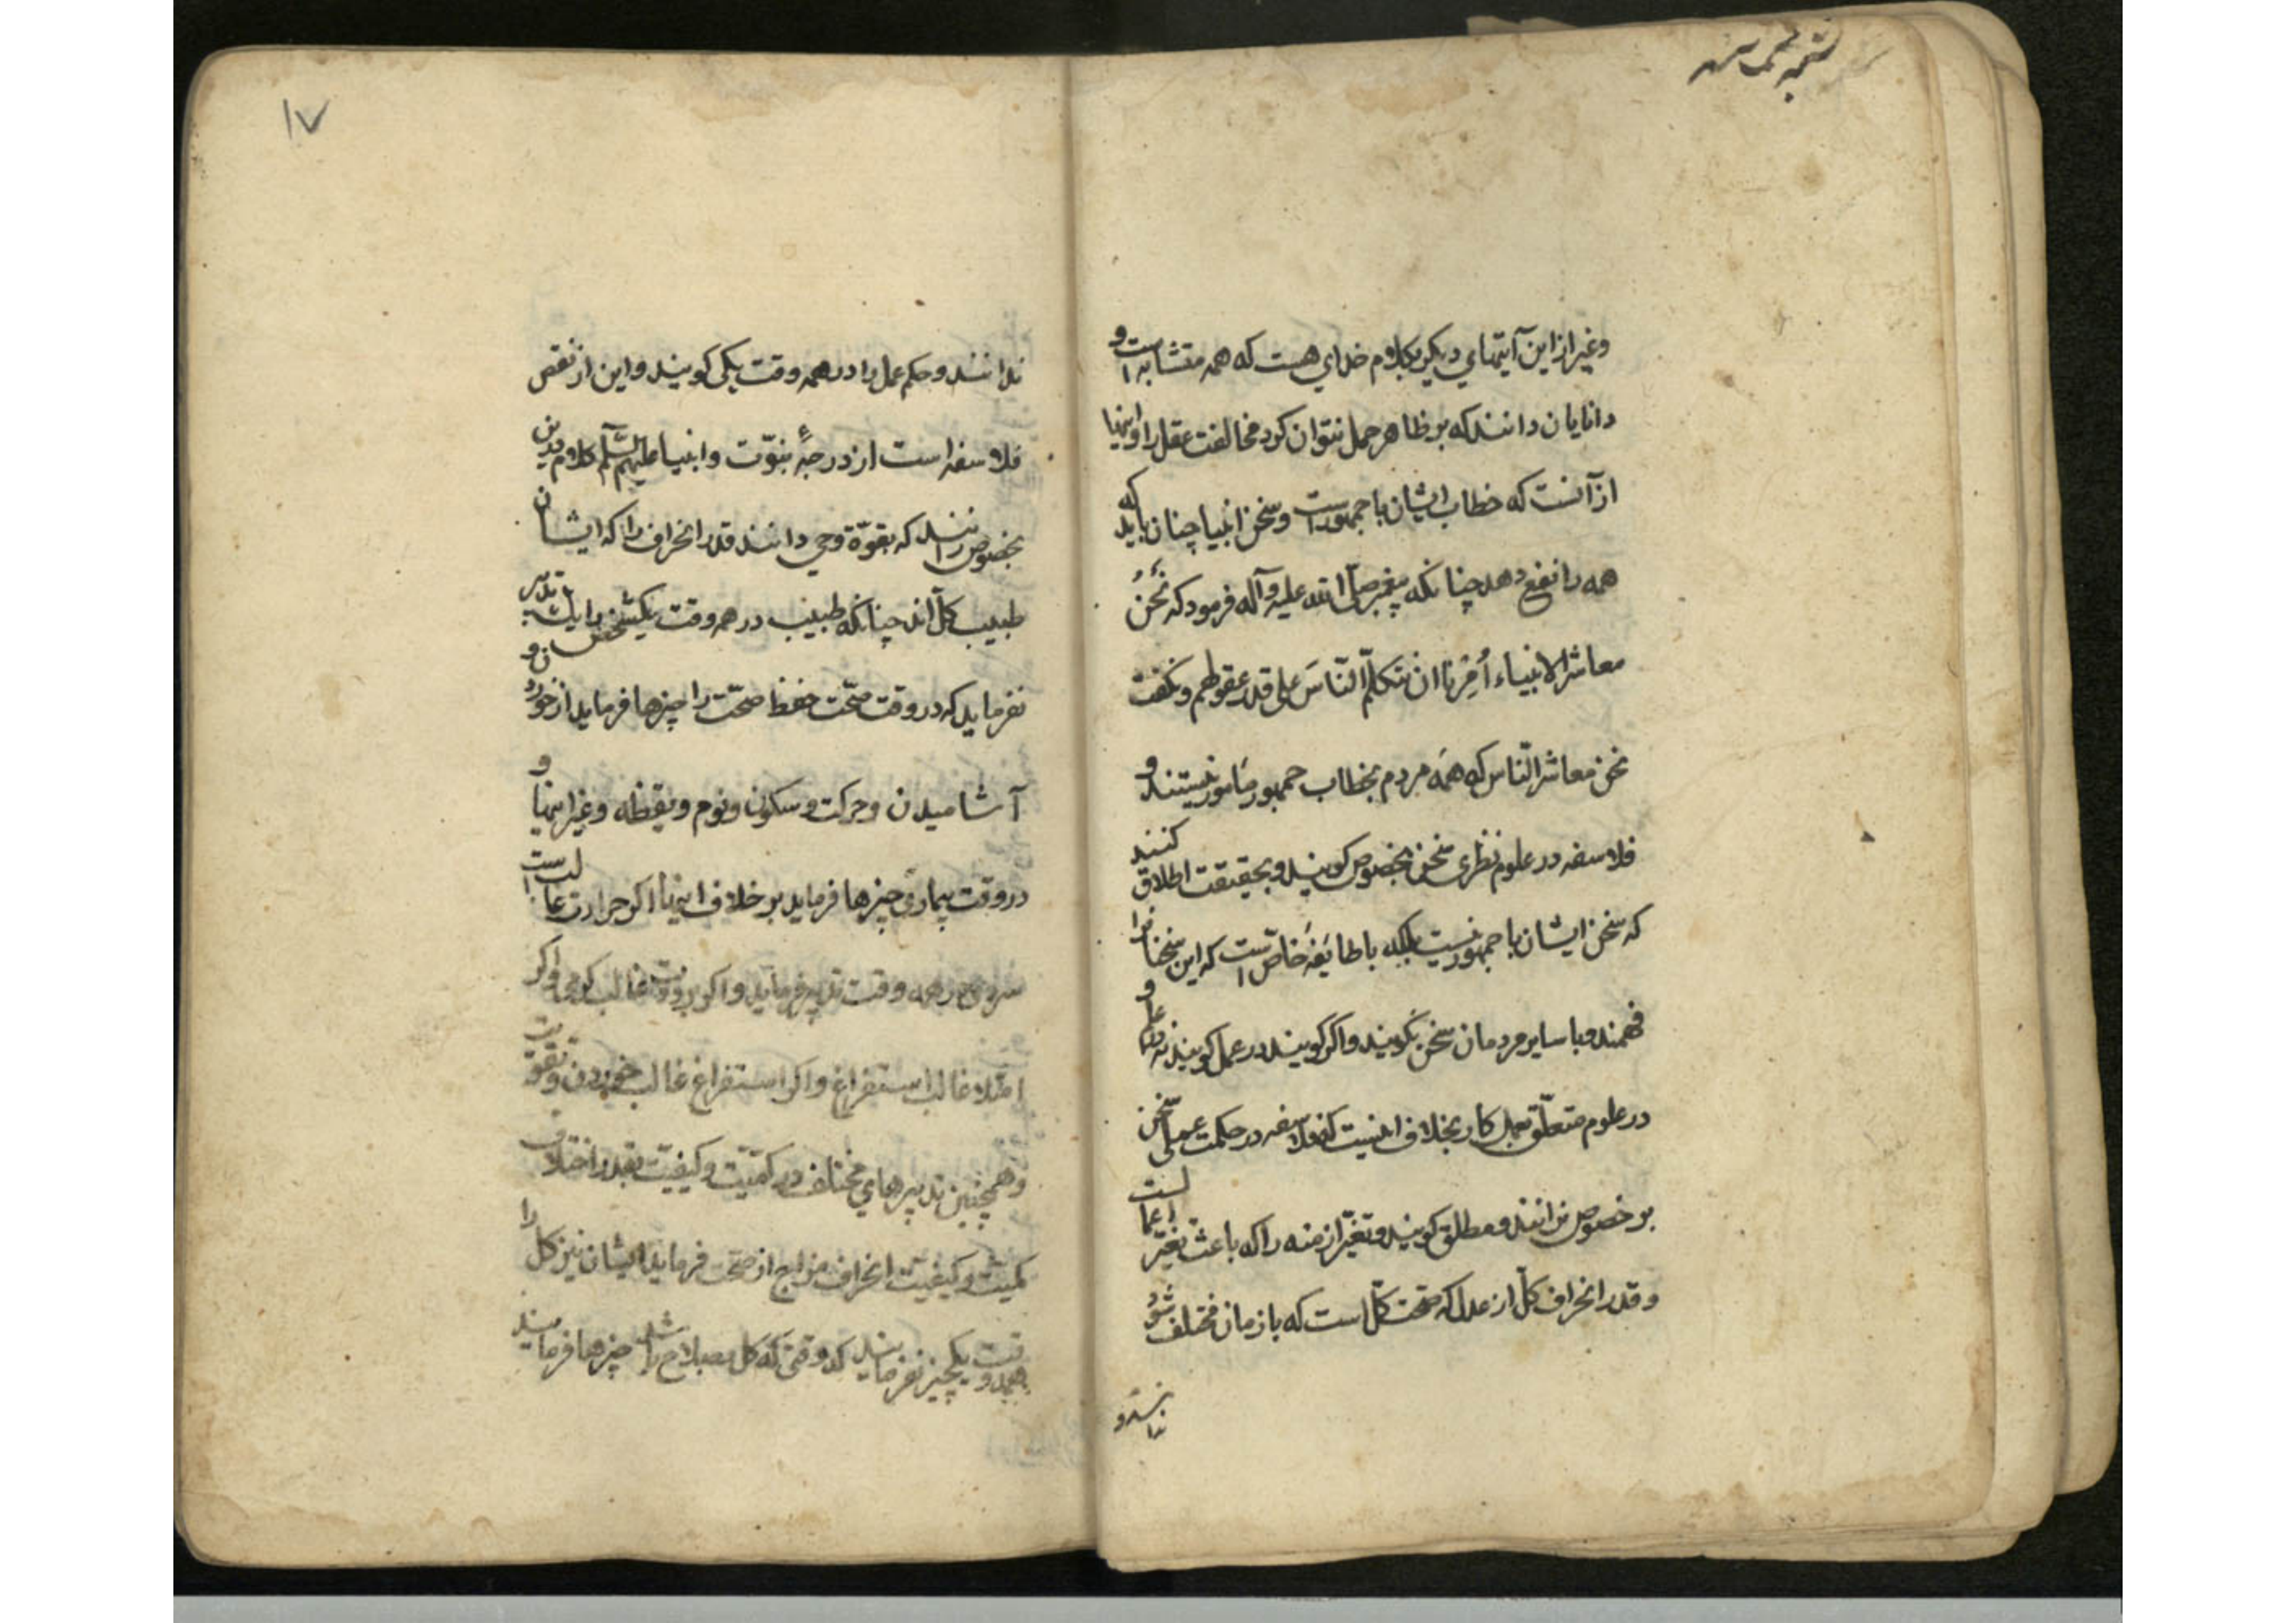 وغیر از این آیتهای دیگر بکلام خدای هست که همه متشابه است و
دانایان دانند که بر ظاهر حمل نتوان کرد مخالفت عقل را و اینها
از آنست که خطاب ایشان با جمهور است و سخن انبیا چنان باید که
همه را نفع دهد چنانکه پیغمبر صلّی الله علیه وآله فرمود که نَحْنُ
معاشر الانبیاء اُمِرْنا ان نتکلّم النّاسَ علی قدر عقولهم و نکفت
نحن معاشر النّاس که همه مردم بخطاب جمهور مأمور نیستند و
فلاسفه در علوم نظری سخن بخصوص کویند و بحقیقت اطلاق کنند
که سخن ایشان با جمهور نیست بلکه با طایفهٔ خاص است که این سخنانرا
فهمند و با سایر مردمان سخن نکویند و اکر کویند در عمل کویند نه در علم و
در علوم متعلّق بعمل کار بخلاف اینست که فلاسفه در حکمت عملی سخن
بر خصوص نرانند و مطلق کویند و تغیّر ازمنه را که باعث تغیّر اعمالست
و قدر انحراف کلّ از عدل که صحّت کلّ است که بازمان مختلف شود
ندانند و
۱۷
ندانند و حکم عمل را در همه وقت یکی کویند و این از نقص
فلاسفه است از درجهٔ نبوّت و انبیا علیهم السّلم کلام در این
بخصوص رانند که بقوّة وحی دانند قدر انحراف را که ایشان
طبیب کلّ اند چنانکه طبیب در همه وقت یکشخص را یک تدبیر
نفرماید که در وقت صحّت حفظ صحّت را چیزها فرماید از خوردن و
آشامیدن و حرکت و سکون و نوم و یقظه و غیر اینها و
در وقت بیماری چیزها فرماید بر خلاف اینها اکر حرارت غالب است
سردی در همه وقت تدبیر فرماید و اکر برودت غالب کرمی و اکر
امتلا غالب استفراغ و اکر استفراغ غالب خوردن و تقویت
و همچنین تدبیرهای مختلف در کمّیّت و کیفیّت بقدر اختلاف
کمیّت و کیفیّت انحراف مزاج از صحّت فرماید ایشان نیز کل را
بهمه وقت یکچیز نفرمایند که وقتی که کل بصلاح باشد چیزها فرمایند